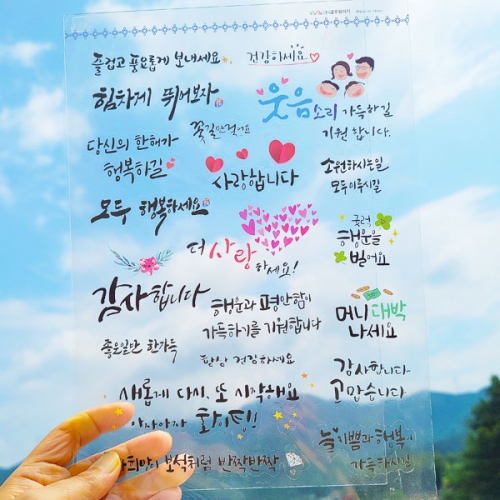 즐겁고 풍요롭게 보내세요
건강하세요
힘차게 뛰어보자
웃음소리 가득하길
기원 합니다.
꽃길만걸어요
당신의 한해가
행복하길
사랑합니다
소원하시는일
모두이루시길
모두 행복하세요
더 사랑
하세요!
굿럭
행운을
빌어요
감사합니다
행운과 평안함이
가득하기를 기원합니다
머니대박
나세요
좋은일만 한가득
만남 건강하세요
감사합니다
고맙습니다
새롭게 다시, 또 시작해요
아자아자 화이팅!
늘 기쁨과 행복이
가득하시길
보석처럼 반짝반짝